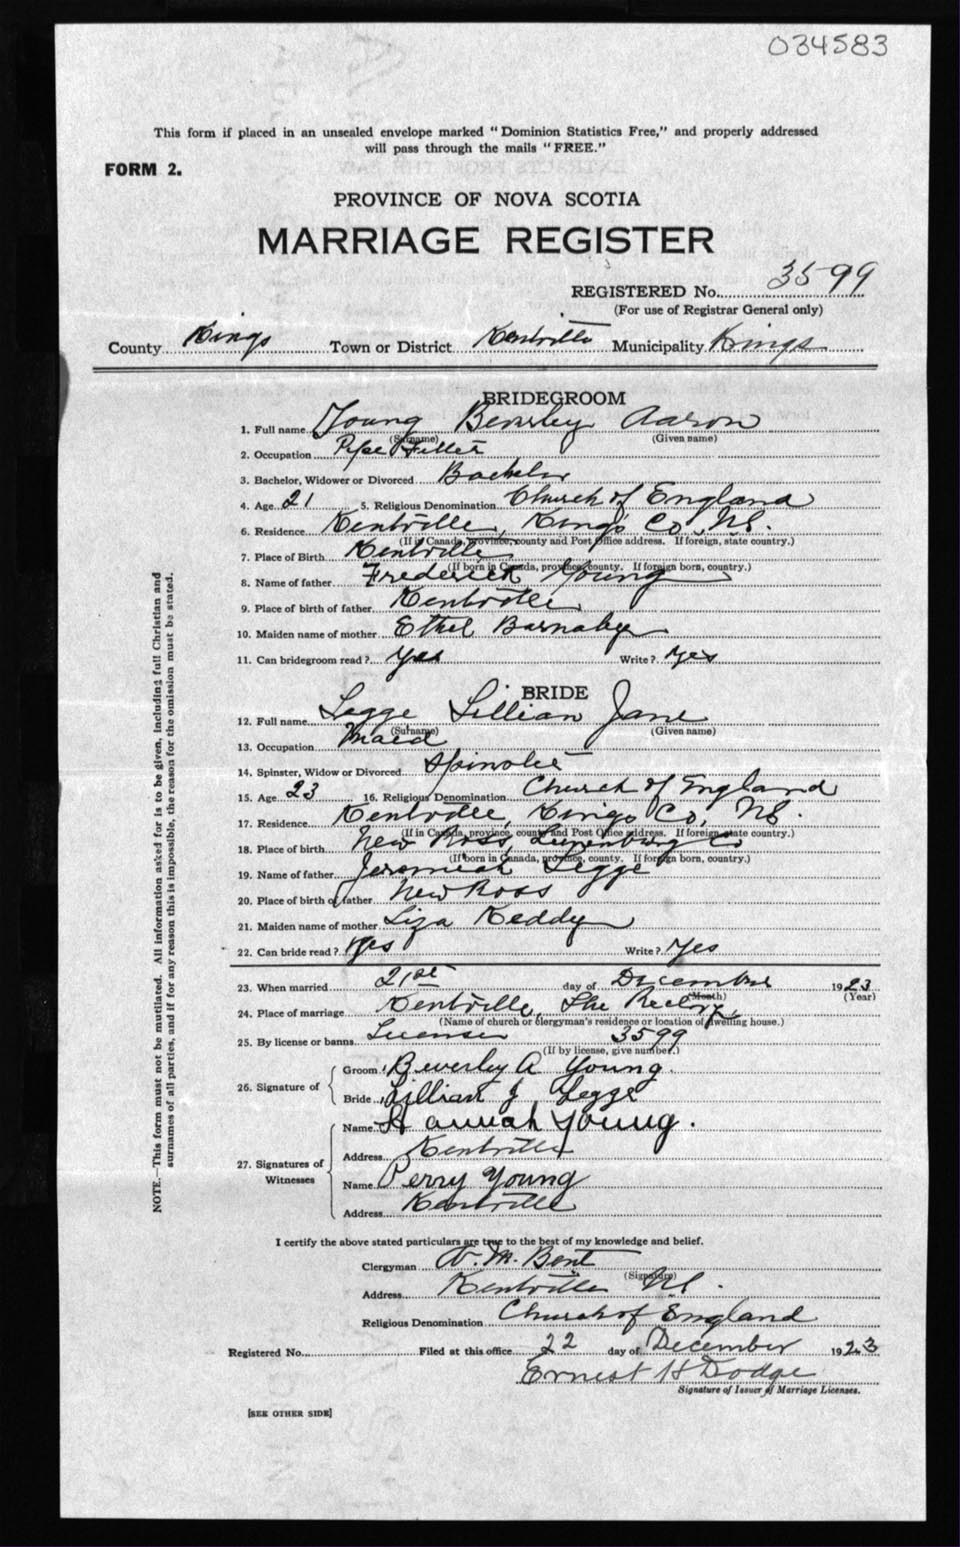 034583
This form if placed in an unsealed envelope marked "Dominion Statistics Free," and properly addressed
will pass through the mails "FREE."
FORM 2.
PROVINCE OF NOVA SCOTIA
MARRIAGE REGISTER
REGISTERED No. 3599
(For use of Registrar General only)
County Kings Town or District Kentville Municipality Kings
BRIDEGROOM
1. Full name Young Beverley Aaron
(Surname) (Given name)
2. Occupation Pipe Fitter
3. Bachelor, Widower or Divorced Bachelor
4. Age 21 5. Religious Denomination Church of England
6. Residence Kentville, Kings Co, NS.
(If in Canada, province, county and Post Office address. If foreign, state country.)
7. Place of Birth Kentville
(If born in Canada, province, county. If foreign born, country.)
8. Name of father Frederick Young
9. Place of birth of father Kentville
10. Maiden name of mother Ethel Barnaby
11. Can bridegroom read? yes Write? yes
BRIDE
12. Full name Legge Lillian Jane
(Surname) (Given name)
13. Occupation Maid
14. Spinster, Widow or Divorced Spinster
15. Age 23 16. Religious Denomination Church of England
17. Residence Kentville, Kings Co, NS.
(If in Canada, province, county and Post Office address. If foreign state country.)
18. Place of birth New Ross, Lunenburg Co
(If born in Canada, province, county. If foreign born, country.)
19. Name of father Jeremiah Legge
20. Place of birth of father New Ross
21. Maiden name of mother Liza Keddy
22. Can bride read? Yes Write? Yes
23. When married 21st day of December 1923
(Month) (Year)
24. Place of marriage Kentville, The Rectory
(Name of church or clergyman's residence or location of dwelling house.)
25. By license or banns License 3599
(If by license, give number.)
26. Signature of
Groom Beverley A Young.
Bride Lillian J Legge
27. Signatures of Witnesses
Name Hannah Young.
Address Kentville
Name Perry Young
Address Kentville
I certify the above stated particulars are true to the best of my knowledge and belief.
Clergyman A. M. Bent
(Signature)
Address Kentville NS.
Religious Denomination Church of England
Registered No. Filed at this office 22 day of December 1923
Ernest H Dodge
Signature of Issuer of Marriage Licenses.
[SEE OTHER SIDE]
NOTE.—This form must not be mutilated. All information asked for is to be given, including full Christian and
surnames of all parties, and if for any reason this is impossible, the reason for the omission must be stated.